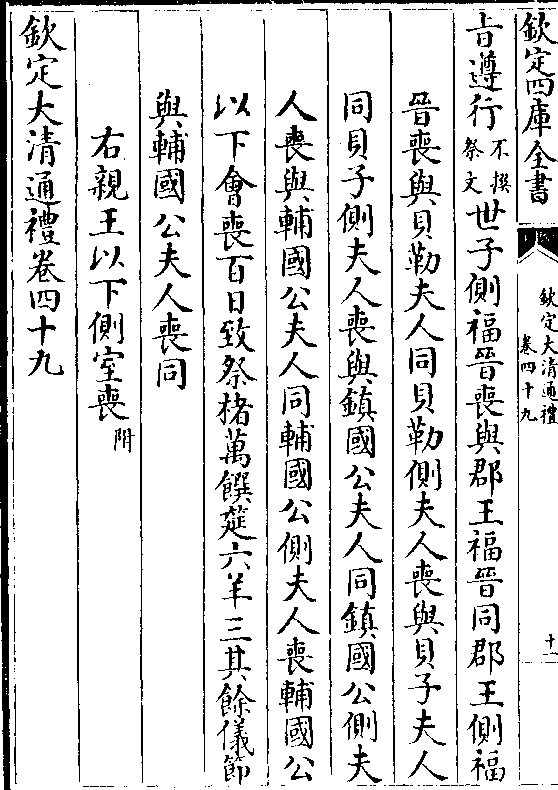 欽定四庫全書
欽定大清通禮
卷四十九
十一
旨遵行不撰祭文世子側福晉喪與郡王福晉同郡王側福
晉喪與貝勒夫人同貝勒側夫人喪與貝子夫人
同貝子側夫人喪與鎮國公夫人同鎮國公側夫
人喪與輔國公夫人同輔國公側夫人喪輔國公
以下會喪百日致祭楮萬饌筵六羊三其餘儀節
與輔國公夫人喪同
右親王以下側室喪附
欽定大清通禮卷四十九